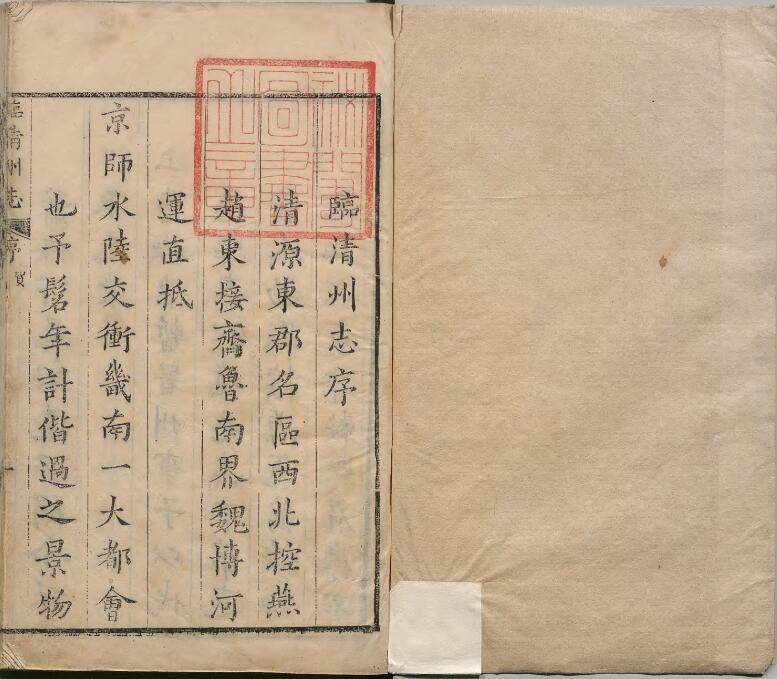 臨清州志序
清源東郡名區西北控燕
趙東接齊魯南界魏博河
運直抵
京師水陸交衝畿南一大都會
也予髫年計偕過之景物
臨清州志
序
賀